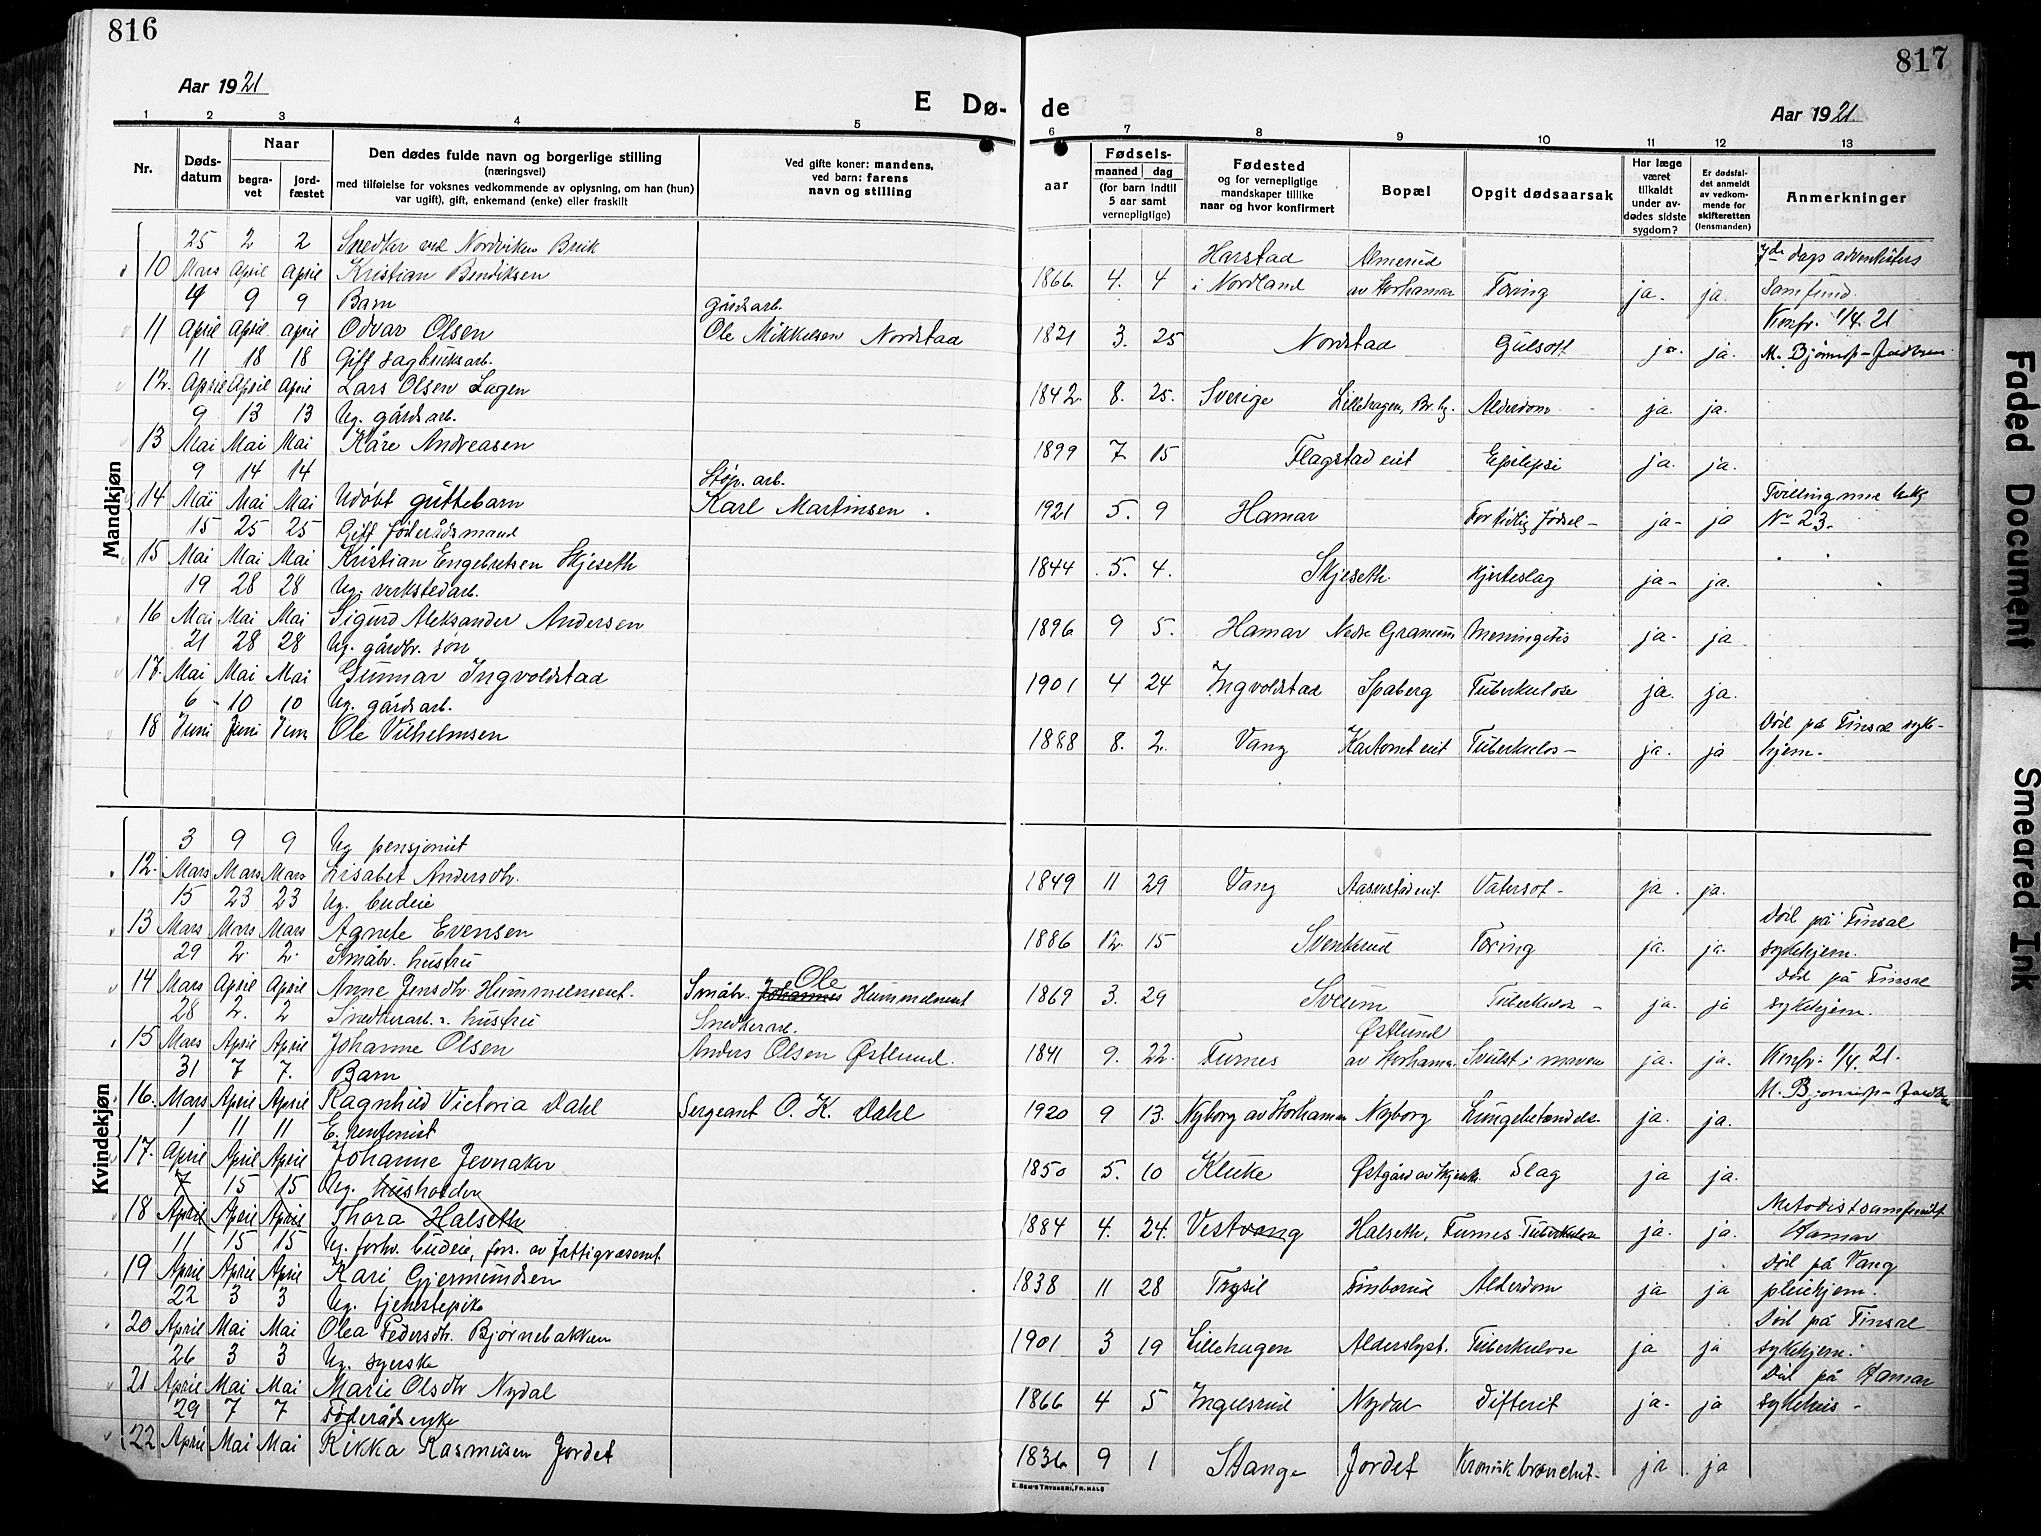 816
817
Aar 1921
E Dø-
de
Aar 1921
1 2 3 4 5 6 7 8 9 10 11 12 13
Nr.
Døds-
datum
Naar
begra-
vet
jord-
fæstet
Den dødes fulde navn og borgerlige stilling
(næringsvei)
med tilføielse for voksnes vedkommende av oplysning, om han (hun)
var ugift), gift, enkemand (enke) eller fraskilt
Ved gifte koner: mandens,
ved barn: farens
navn og stilling
Fødsels-
aar
maaned
dag
(for barn indtil
5 aar samt
vernepligtige)
Fødested
og for vernepligtige
mandskaper tillike
naar og hvor konfirmert
Bopæl
Opgit dødsaarsak
Har læge
været
tilkaldt
under av-
dødes sidste
sygdom?
Er dødsfal-
det anmeldt
av vedkom-
mende for
skifteretten
(lensmanden)
Anmerkninger
Mandkjøn
25 2 2 Snedker ved Nordviken Bruk Harstad Almerud 7de dags adventisters
10 Mars April April Kristian Bendiksen 1866 4. 4 i Nordland av Horhamar Tæring ja. ja. Samfund.
4 9 9 Barn gårdsarb. Konfr. 1/4. 21
11 April April April Odvar Olsen Ole Mikkelsen Nordstad 1821 3. 25 Nordstad Gulsott ja. ja.
11 18 18 Gift sagbruksarb.
12. April April April Lars Olsen Lagen 1842 8. 25. Sverige Lillehagen, Alderdom ja. ja.
9 13 13 Ug. gårdsarb.
13 Mai Mai Mai Kåre Andreasen 1899 7 15 Flagstad eiet Epilepsi ja. ja.
9 14 14 Støp. arb.
14 Mai Mai Mai Udøbt guttebarn Karl Martinsen. 1921 5. 9 Hamar For tidlig fødsel - ja - ja Nr 23.
15 25 25 Gift føderådsmand
15 Mai Mai Mai Kristian Engebretsen Skjeseth 1844 5. 4. Skjeseth Hjerteslag ja - ja.
19 28 28 Ug. verkstedarb.
16 Mai Mai Mai Sigurd Aleksander Andersen 1896 9 5. Hamar Nedre Meningitis ja - ja
21 28 28 Ug. gårdbr. søn
17. Mai Mai Mai Gunnar Ingvoldstad 1901 4 24 Ingvoldstad Spaberg Tuberkulose ja. ja.
6 10 10 Ug. gårdsarb. Død på Finsal syke-
18 Juni Juni Juni Ole Vilhelmsen 1888 8. 2. Vang Tuberkulos - ja. ja hjem.
Kvindekjøn
3 9 9 Ug pensjonist
12. Mars Mars Mars Lisabet Andersdtr. 1849 11 29 Vang Vatersot - ja ja.
15 23 23 Ug. budeie Død på Finsal
13 Mars Mars Mars Agnete Evensen 1886 12. 15 Svenkerud Tæring ja. ja. sykehjem.
29 2. 2. Småbr. hustru Ole Død på Finsal
14 Mars April April Anne Jensdtr. Hummelment. Småbr. Johannes Hummelment 1869 3. 29 Sveum Tuberkulose - ja. ja sykehjem.
28 2. 2 Snedkerarb. s. hustru Snedkerarb. Østlund
15 Mars April April Johanne Olsen Anders Olsen Østlund. 1841 9. 22. Furnes av Horhamar Svulst i maven ja. ja. Konfr. 1/4. 21.
31 7 7. Barn
16. Mars April April Ragnhild Victoria Dahl Sergeant O. K. Dahl 1920 9 13. Nyborg av Horhamar Nyborg Lungebetændels. ja. ja.
1 11 11 E. rentenist
17. April April April Johanne Jevnaker 1850 5. 10 Kluke Østgård av Slag ja ja.
7 15 15 Ug. husholder Metodistsamfundet
18 April April April Thora Halseth 1884 4. 24. Vestvang Halseth, Furnes Tuberkulose ja. ja. Hamar
11 15 15 Ug. forhv. budeie, fors. av fattigvæsenet. Død på Vang
19 April April April Kari Gjermundsen 1838 11 28 Trysil Finborud Alderdom ja ja pleiehjem.
22 3 3 Ug. tjenstepike Død på Finsal
20 April Mai Mai Olea Pedersdtr. Bjørnebakken 1901 3 19 Lillehagen Alderslyst. Tuberkulose ja ja sykehjem.
26 3 3 Ug. syerske Død på Hamar
21 April Mai Mai Marie Olsdtr Nydal 1866 4 5 Ingelsrud Nydal Difterit ja. ja sykehus -
29 7 7 Føderådsenke
22 April Mai Mai Rikka Rasmussen Jordet 1836 9 1 Stange Jordet Kronisk bronchit - ja. ja
E. SEM'S TRYKKERI, FR.HALD
Faded Document
Smeared Ink